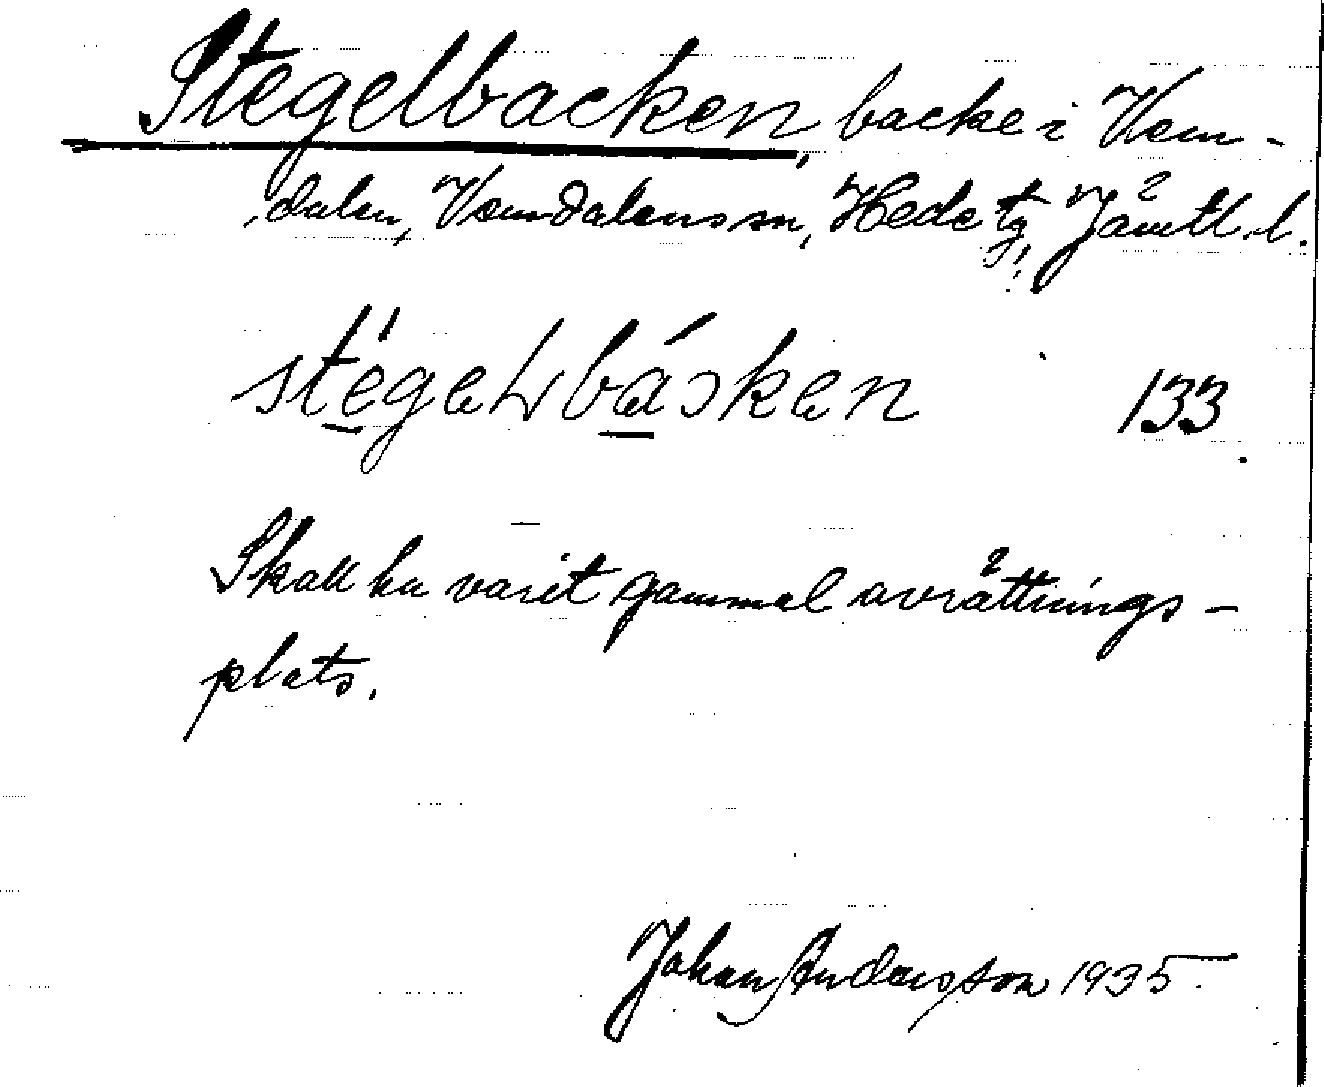 Stegelbacken, backe i Vem-
dalen, Vemdalens sn, Hede tg, Jämtl. l.
133
Skall ha varit gammal avrättnings-
plats.
Johan Andersson 1935.